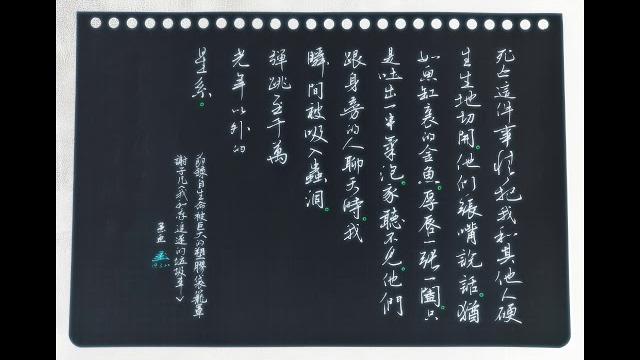 死亡這件事情把我和其他人硬
生生地切開。他們張嘴說話。猶
如魚缸裏的金魚。厚唇一張一闔。只
是吐出一串氣泡。我聽不見。他們
跟身旁的人聊天時。我
瞬間被吸入蟲洞。
彈跳至千萬
光年以外的
星系。
節錄自生命被巨大的塑膠袋籠罩
謝子凡《我和存在之間的垃圾車》